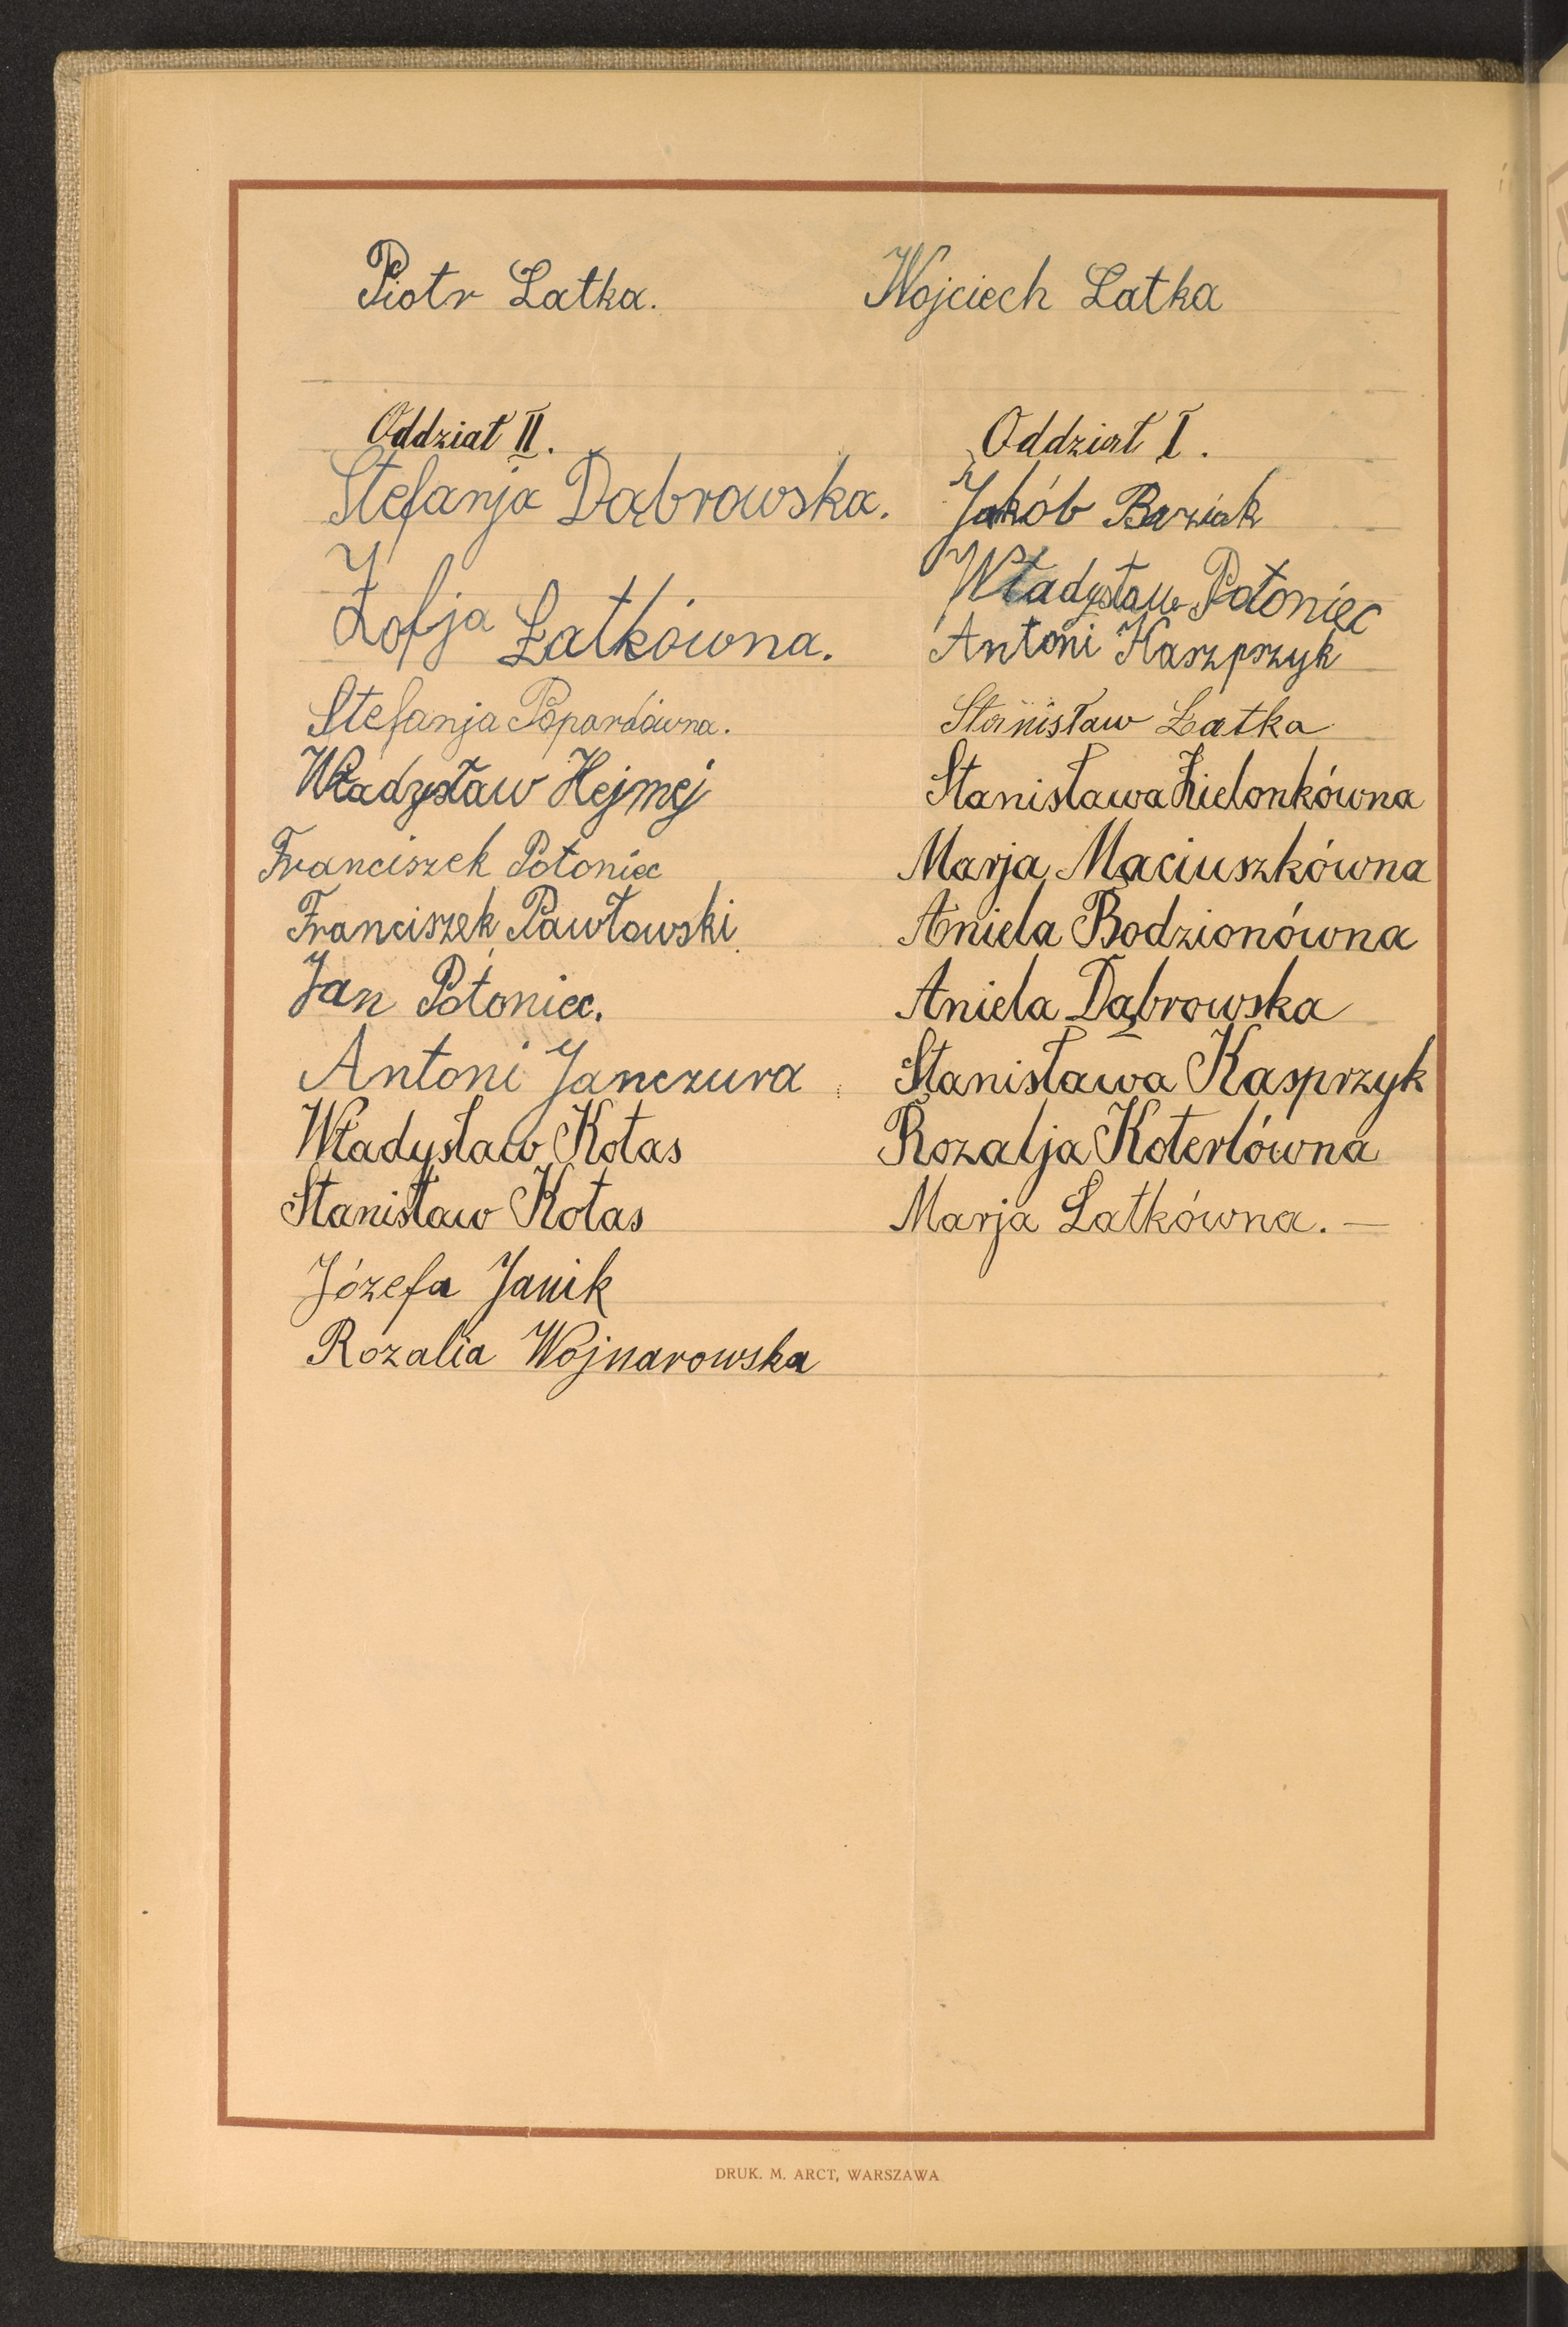 Piotr Latka.
Wojciech Latka
Oddział II.
Stefanja Dąbrowska.
Zofja Latkówna.
Stefanja Popardówna.
Władysław Hejmej
Franciszek Potoniec
Franciszek Pawłowski
Jan Potoniec.
Antoni Janczura
Władysław Kotas
Stanisław Kotas
Józefa Janik
Rozalia Wojnarowska
Oddział I.
Jakób Baziak
Władysław Potoniec
Antoni Kaszprzyk
Stanisław Latka
Stanisława Zielonkówna
Marja Maciuszkówna
Aniela Bodzionówna
Aniela Dąbrowska
Stanisława Kasprzyk
Rozalja Koterlówna
Marja Latkówna. —
DRUK. M. ARCT, WARSZAWA